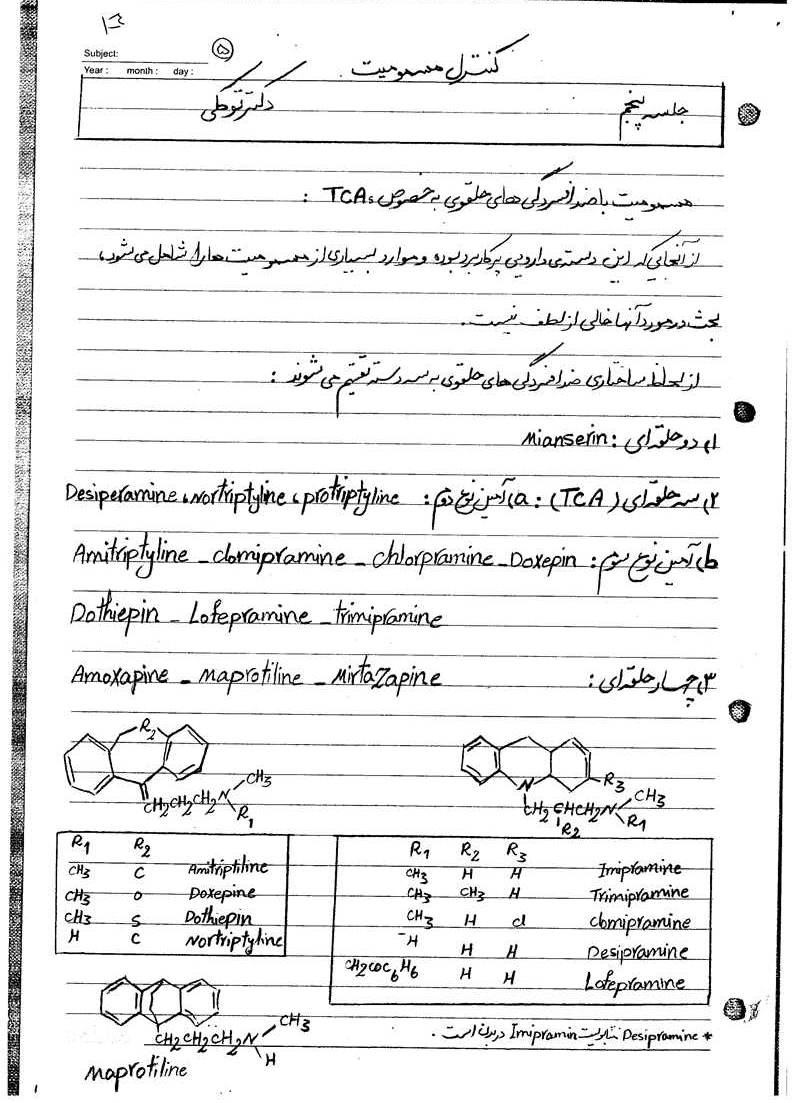 ۱۳
Subject:
Year : month : day :
۵
کنترل مسمومیت
جلسه پنجم
دکتر توطی
مسمومیت با ضد افسردگی های حلقوی به خصوص TCA :
از آنجایی که این دسته ی دارویی پرکاربرد بوده و موارد بسیاری از مسمومیت ها را شامل می شود،
بحث در مورد آنها خالی از لطف نیست.
از لحاظ ساختاری ضد افسردگی های حلقوی به سه دسته تقسیم می شوند :
۱) دو حلقه ای : Mianserin
۲) سه حلقه ای (TCA) : a) آمین نوع دوم : Desiperamine ، Nortriptyline ، protriptyline
b) آمین نوع سوم : Amitriptyline _ clomipramine _ chlorpramine _ Doxepin
Dothiepin _ Lofepramine _ trimipramine
۳) چهار حلقه ای : Amoxapine _ maprotiline _ MirtaZapine
R2
CH2CH2CH2N CH3
R1
N R3
CH2CHCH2N CH3
R2 R1
R1 R2
CH3 C Amitriptiline
CH3 O Doxepine
CH3 S Dothiepin
H C Nortriptyline
R1 R2 R3
CH3 H H Imipramine
CH3 CH3 H Trimipramine
CH3 H cl clomipramine
H H H Desipramine
CH2COC6H6 H H Lofepramine
CH2CH2CH2N CH3
H
maprotiline
* Desipramine متابولیت Imipramin در بدن است.